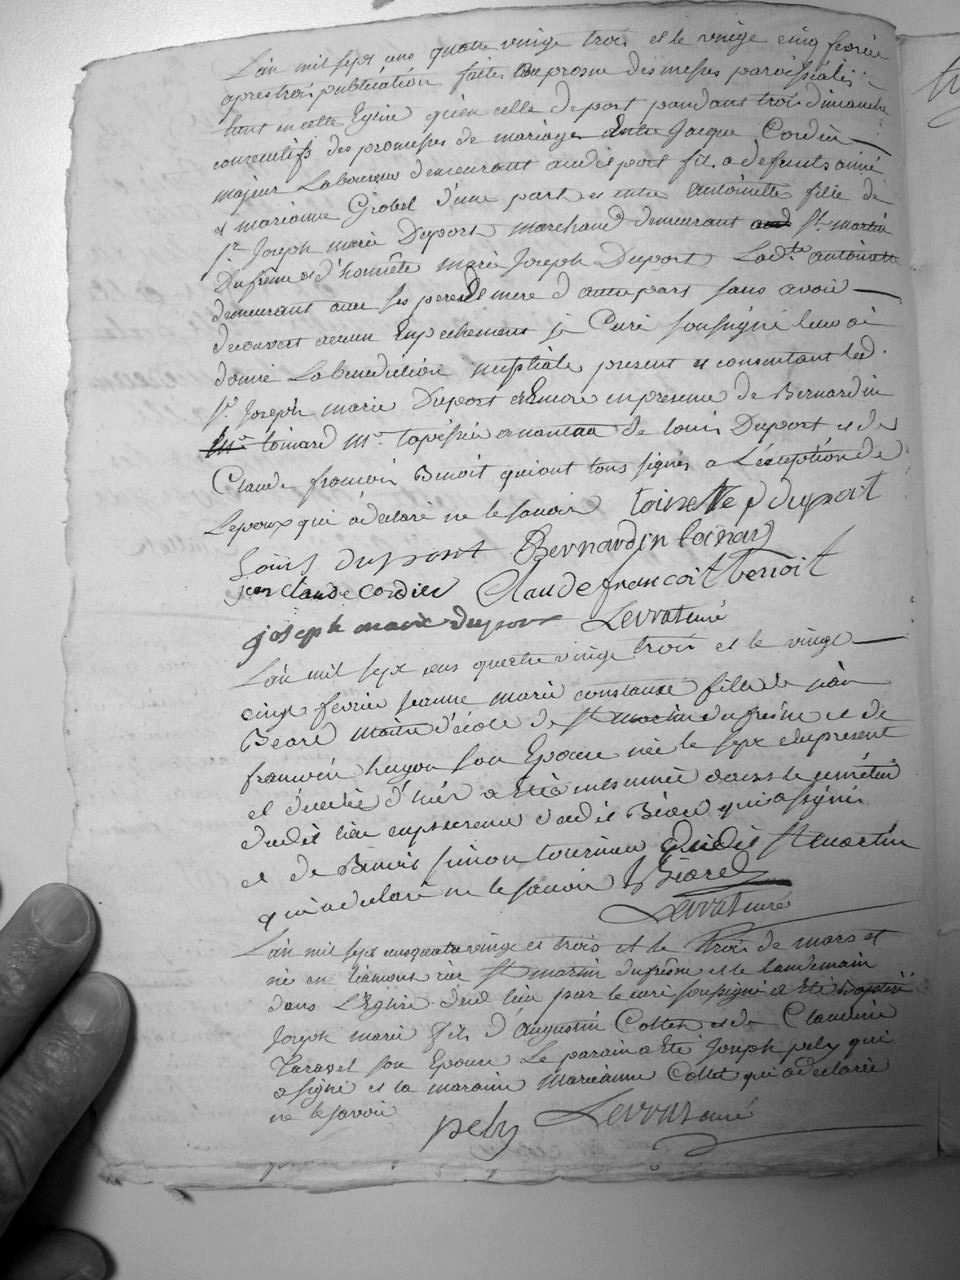 L'an mil sept cens quatre vingt trois et le vingt cinq fevrié
apres trois publication faites au prosne des messes paroissiales
tant en cette Eglise qu'en celle de port pandant trois dimanche
consecutifs des promesses de mariage Entre Jacque Cordié
majeur Laboureur demeurant audit port fils a defunts aimé
et marianne Grobel d'une part et entre antoinette fille de
Sr. Joseph marie Duport marchand demeurant St. martin
Du frêne et d'honnête marie Joseph Duport Ladte. antoinette
demeurant avec ses pere et mere d'autre part sans avoir
decouvert aucun Empechement je Curé soussigné leur ai
donné La benediction nuptiale present et consentant led.
Sr. Joseph marie Duport Encore en presence de Bernardin
toinard Mr. tapissié a nantua de louis Duport et de
Claude françois Benoit qui ont tous signes a L'exception de
L'epoux qui a declaré ne le savoir toinette d duport
Louis duport Bernardin toinard
jean claude cordier Claude françoit benoit
joseph marie duport Levrat curé
L'an mil sept cens quatre vingt trois et le vingt
cinq fevrié jeanne marie constance fille de jean
Beard maitre d'école de St martin du frêne et de
hugon son Epouse née le sept du present
et decedée d'hier a été inhumée dans le cimetiere
dudit lieu en presence dudit Béard qui a signé
et de Benoit simon tournier dudit St martin
qui a declaré ne le savoir Béard
Levrat curé
L'an mil sept cens quatre vingt et trois et le trois de mars est
né en St martin du frêne et le landemain
dans L'Eglise dud lieu par le curé soussigné a été baptisé
Joseph marie fils d'augustin Collet et de Claudine
Ravael son Epouse Le parain a été Joseph pely qui
a signé et la maraine marianne Collet qui a declaré
ne le savoir
pely Levrat curé